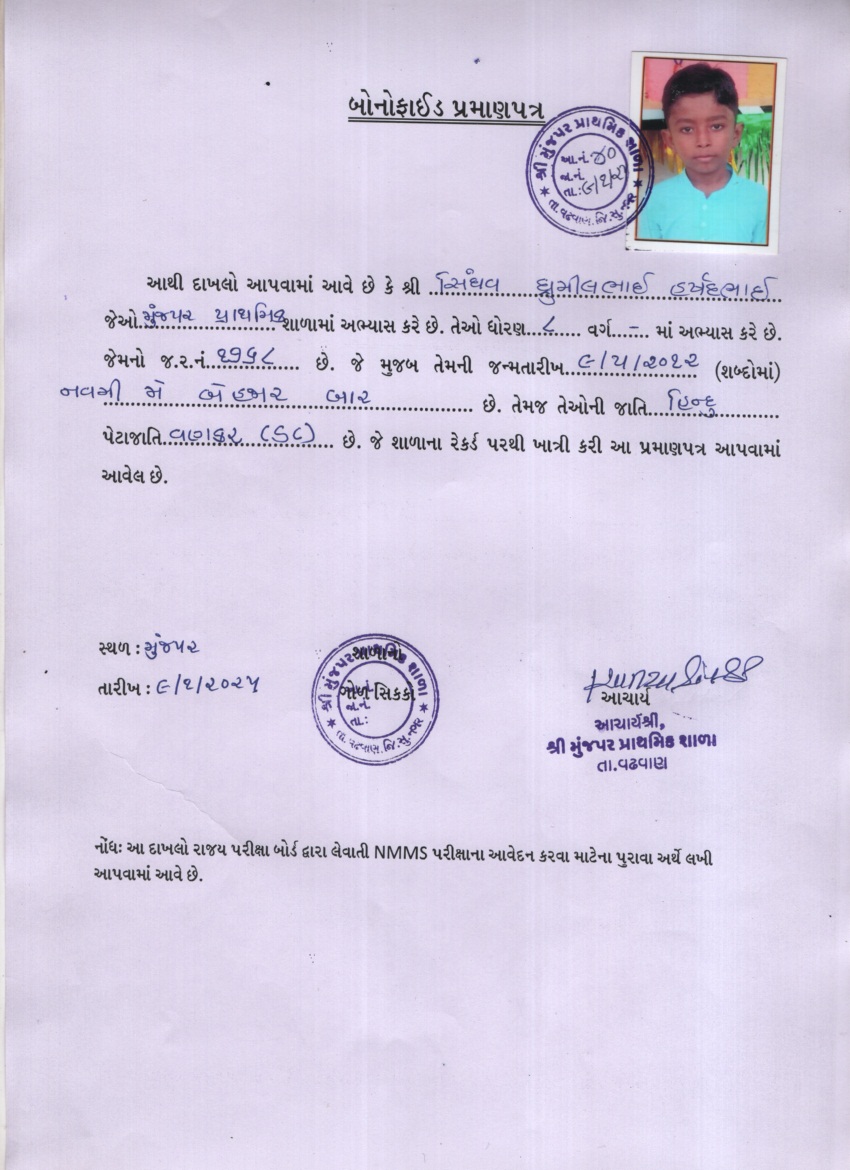 બોનોફાઈડ પ્રમાણપત્ર
શ્રી મુંજપર પ્રાથમિક શાળા
આ.નં. ૪૦
જા.નં.
તા.: ૯/૧/૨૫
તા. વઢવાણ. જિ. સુ.નગર
આથી દાખલો આપવામાં આવે છે કે શ્રી સિંધવ ધ્રુમીલભાઈ હર્ષદભાઈ
જેઓ મુંજપર પ્રાથમિક શાળામાં અભ્યાસ કરે છે. તેઓ ધોરણ ૮ વર્ગ - માં અભ્યાસ કરે છે.
જેમનો જ.ર.નં. ૧૭૬૮ છે. જે મુજબ તેમની જન્મતારીખ ૯/૫/૨૦૧૨ (શબ્દોમાં)
નવમી મે બે હજાર બાર છે. તેમજ તેઓની જાતિ હિન્દુ
પેટાજાતિ વણકર (SC) છે. જે શાળાના રેકર્ડ પરથી ખાત્રી કરી આ પ્રમાણપત્ર આપવામાં
આવેલ છે.
સ્થળ : મુંજપર
તારીખ : ૯/૧/૨૦૨૫
શ્રી મુંજપર પ્રાથમિક શાળા
શાળાનો
ગોળ સિક્કો
જા.નં.
તા.:
તા. વઢવાણ. જિ. સુ.નગર
આચાર્ય
આચાર્યશ્રી,
શ્રી મુંજપર પ્રાથમિક શાળા
તા.વઢવાણ
નોંધઃ આ દાખલો રાજય પરીક્ષા બોર્ડ દ્વારા લેવાતી NMMS પરીક્ષાના આવેદન કરવા માટેના પુરાવા અર્થે લખી
આપવામાં આવે છે.